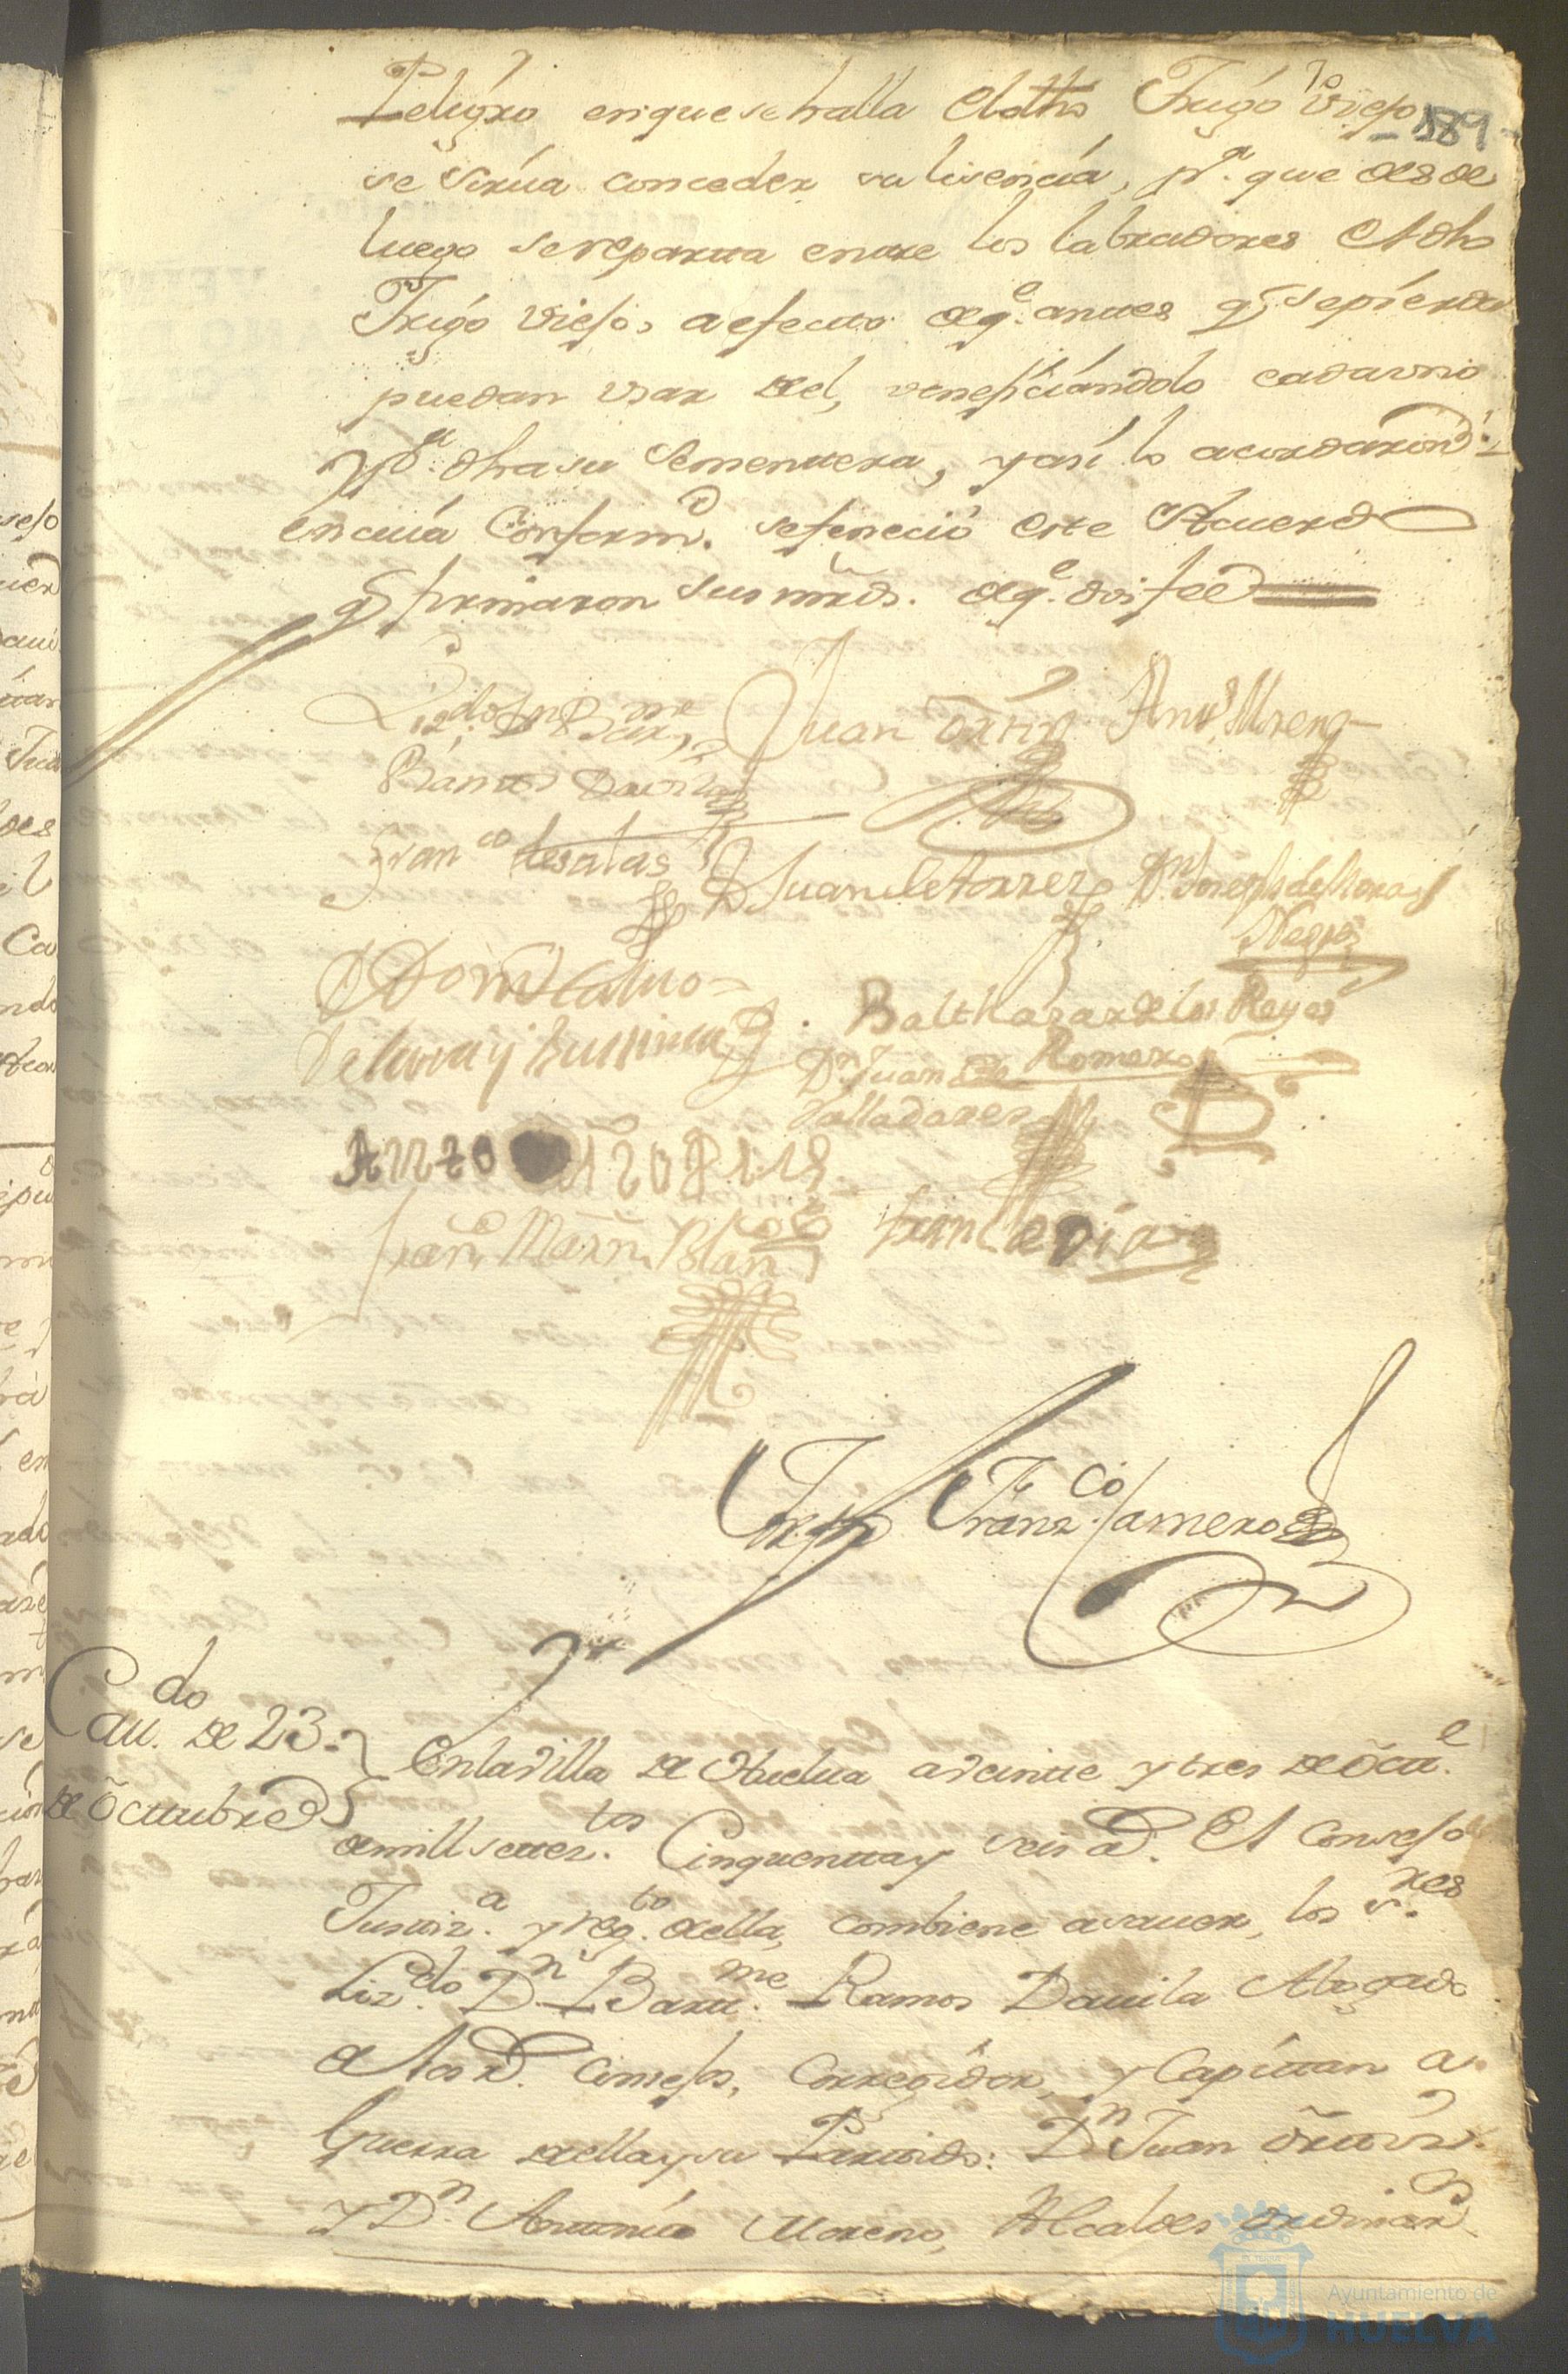 Peligro en que se halla el dho Trigo viejo
189
se sirua conceder su lisencia, pa. que desde
luego se reparta entre los labradores el dho
Trigo viejo, a efecto de qe. antes q se pierda
puedan vsar del, veneficiandolo cada vno
pa. dha su sementera, y asi lo acordaron
en cuia Conformd. se feneció este Acuerdo
q firmaron sus mrds. de qe. doi fee
Lizdo. Dn Barme
Ramos Dauila
Juan Ortiz
Anto. Moreno
Franco de salas
D Juan de torres
Dn Joseph de Mora y
Negro
Balthasar de los Reyes
Romero
Dn Juan de
Valladares
Franco Marn. Blanco
Fran Diaz
Joseph Franzco. Camero
Caudo. de 23
de Octubre
En la Villa de Huelua a veinte y tres de Octe.
de mill seteztos. Cinquenta y seis as. El Consejo
Justiza. y regto. de ella, combiene a sauer, los sres.
Lizdo. Dn. Barme. Ramos Dauila Abogado
de los Rs. Consejos, Corregidor, y Capitan a
Guerra de ella y su Partido: Dn Juan Ortiz
y Dn. Antonio Moreno, Alcaldes ordinars.
Ayuntamiento de
HUELVA